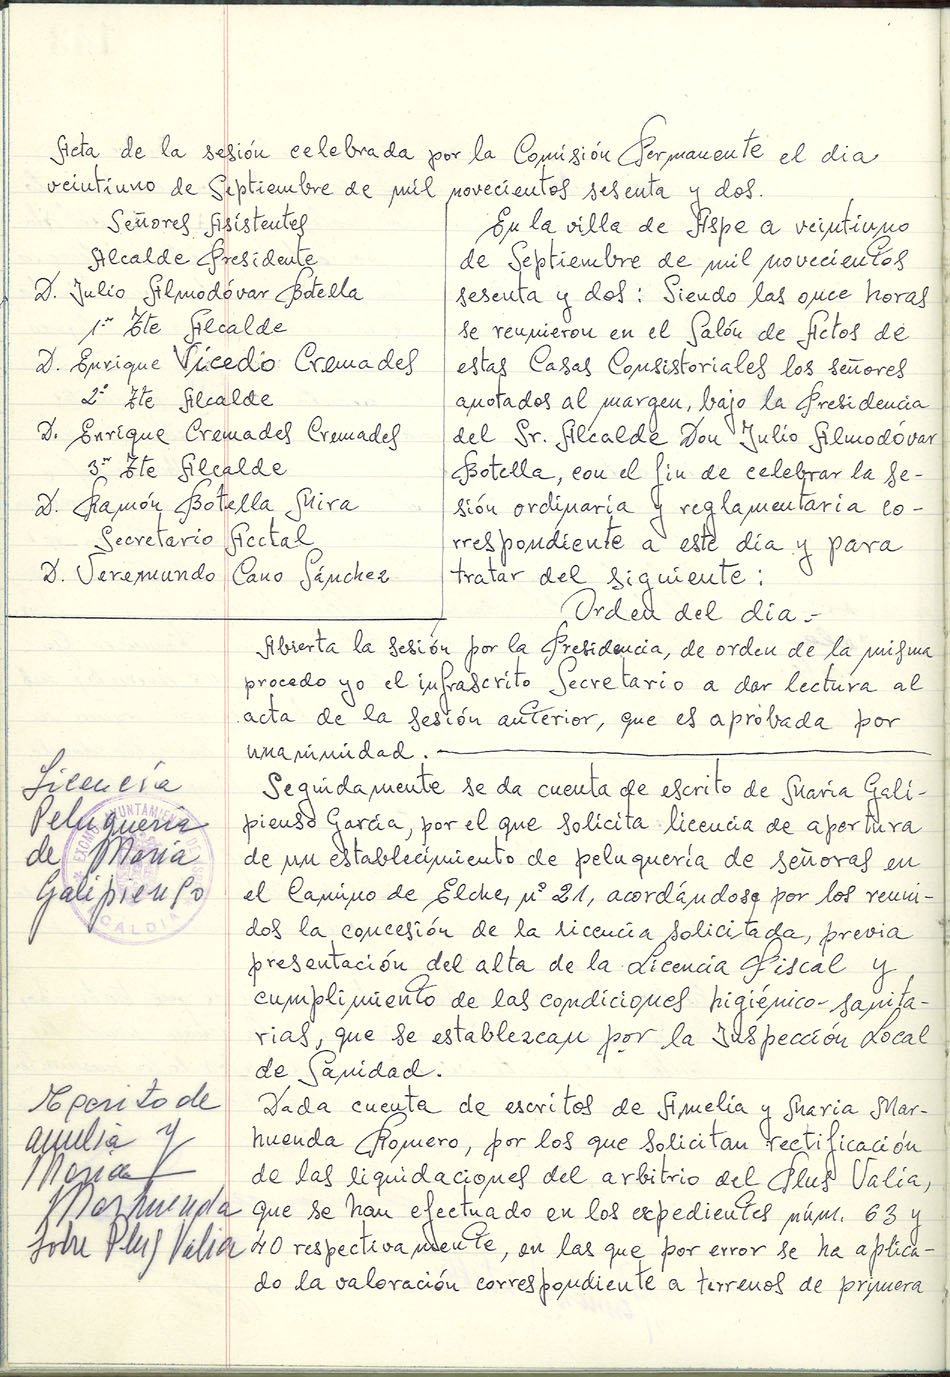 Acta de la sesión celebrada por la Comisión Permanente el dia
veintiuno de Septiembre de mil novecientos sesenta y dos.
Señores Asistentes
Alcalde Presidente
D. Julio Almodóvar Botella
1er Tte Alcalde
D. Enrique Vicedo Cremades
2º Tte Alcalde
D. Enrique Cremades Cremades
3er Tte Alcalde
D. Ramón Botella Mira
Secretario Acctal
D. Veremundo Cano Sánchez
En la villa de Aspe a veintiuno
de Septiembre de mil novecientos
sesenta y dos: Siendo las once horas
se reunieron en el Salón de Actos de
estas Casas Consistoriales los señores
anotados al margen, bajo la Presidencia
del Sr. Alcalde Don Julio Almodóvar
Botella, con el fin de celebrar la se-
sión ordinaria y reglamentaria co-
rrespondiente a este día y para
tratar del siguiente:
Orden del dia.-
Abierta la sesión por la Presidencia, de orden de la misma
procedo yo el infrascrito Secretario a dar lectura al
acta de la sesión anterior, que es aprobada por
unanimidad.
Licencia
Peluqueria
de Maria
Galipienso
EXCMO. AYUNTAMIENTO DE ASPE
ALCALDIA
Seguidamente se da cuenta de escrito de Maria Gali-
pienso García, por el que solicita licencia de apertura
de un establecimiento de peluquería de señoras en
el Camino de Elche, nº 21, acordándose por los reuni-
dos la concesión de la licencia solicitada, previa
presentación del alta de la Licencia Fiscal y
cumplimiento de las condiciones higiénico-sanita-
rias, que se establezcan por la Inspección Local
de Sanidad.
Escrito de
amelia y
Maria
Marhuenda
sobre Plus Valia
Dada cuenta de escritos de Amelia y Maria Mar-
huenda Romero, por los que solicitan rectificación
de las liquidaciones del arbitrio del Plus Valía,
que se han efectuado en los expedientes núm. 63 y
40 respectivamente, en las que por error se ha aplica-
do la valoración correspondiente a terrenos de primera